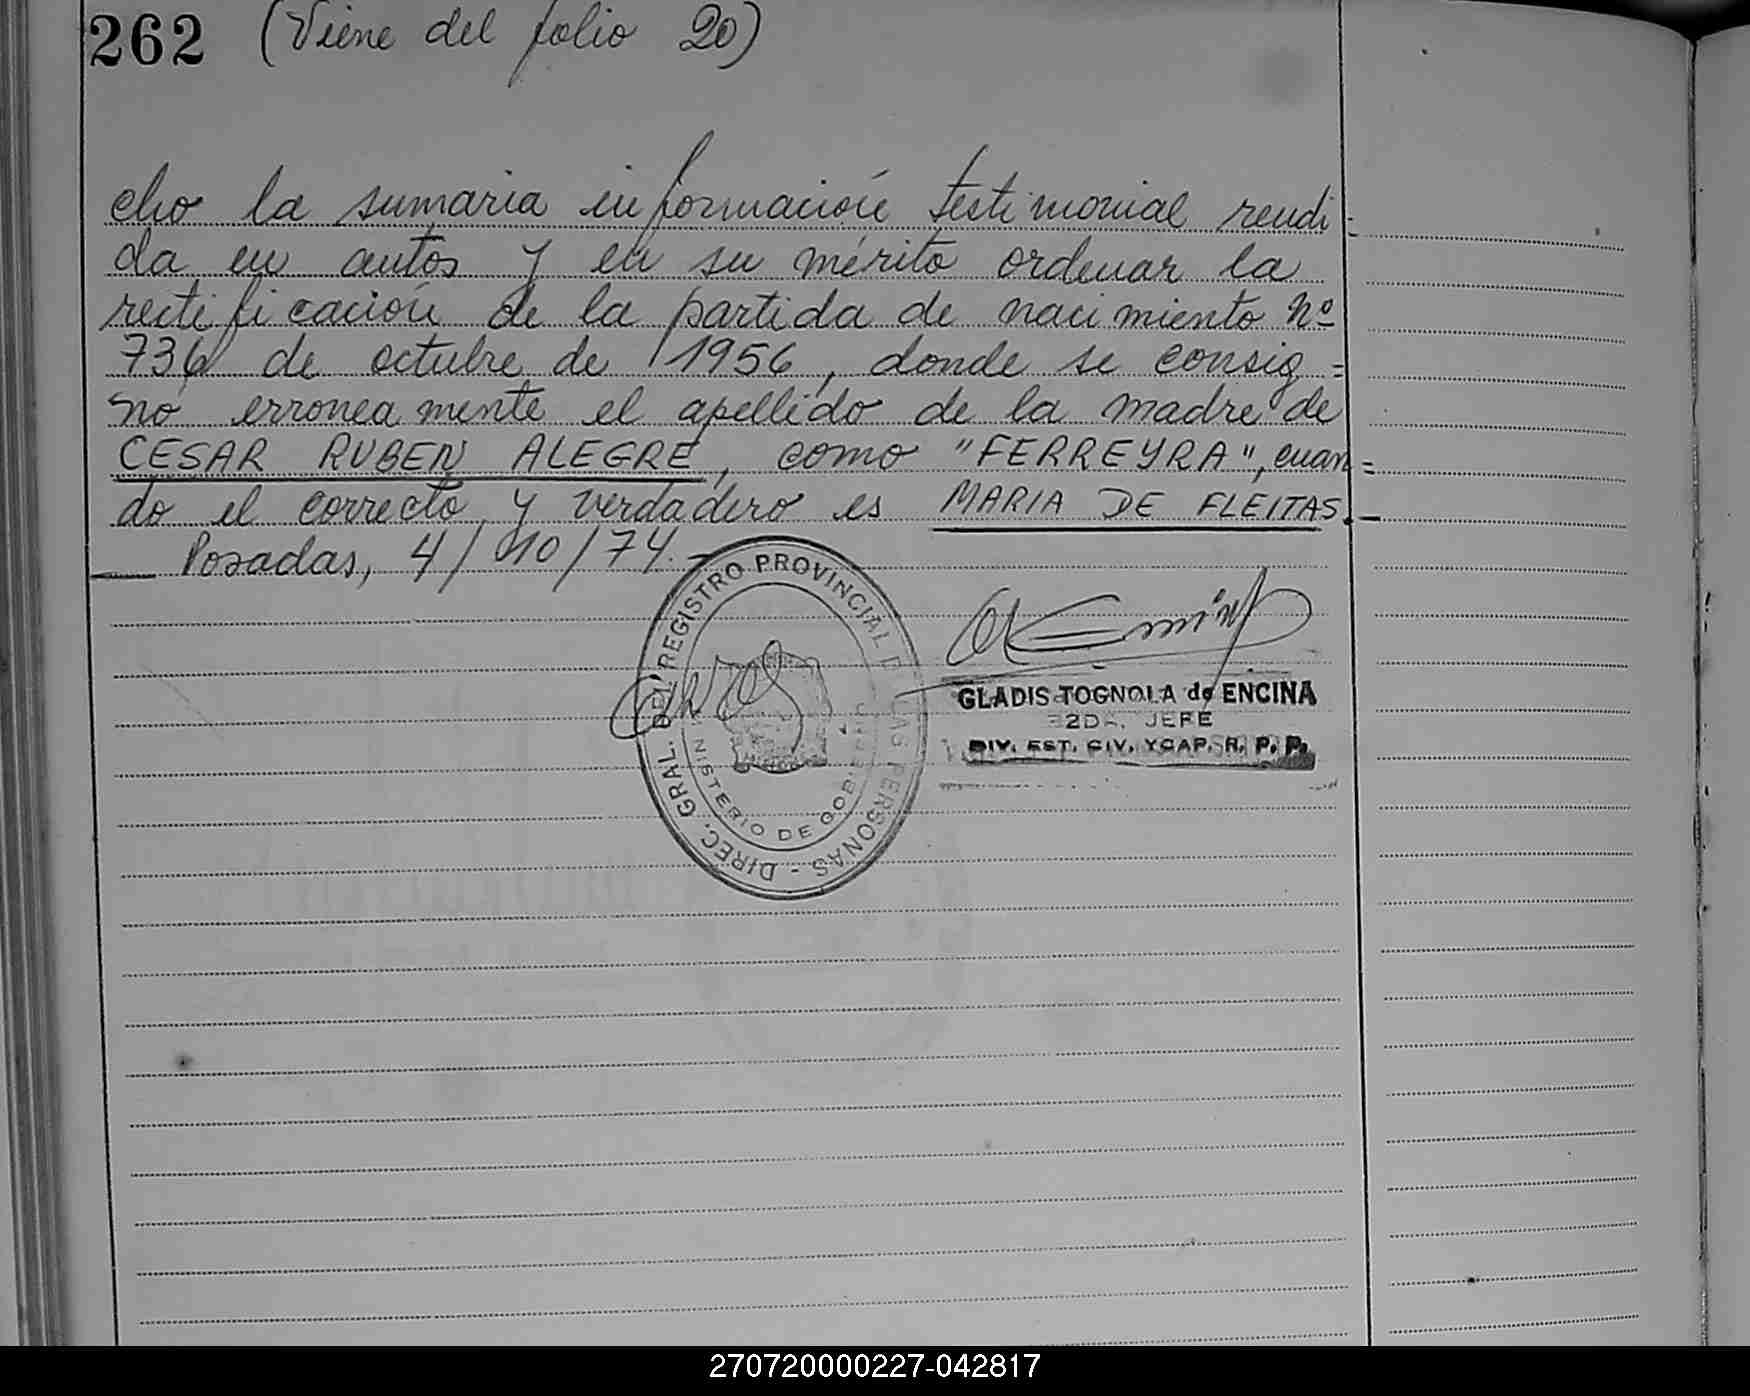 262 (Viene del folio 20)
cho la sumaria información testimonial rendi-
da en autos y en su mérito ordenar la
rectificación de la partida de nacimiento Nº
736 de octubre de 1956, donde se consig=
nó erroneamente el apellido de la madre de
CESAR RUBEN ALEGRE, como "FERREYRA", cuan=
do el correcto y verdadero es MARIA DE FLEITAS.—
— Posadas, 4/10/74.—
DIREC. GRAL. DEL REGISTRO PROVINCIAL DE LAS PERSONAS -
MINISTERIO DE GOBIERNO
GLADIS TOGNOLA de ENCINA
2DA. JEFE
DIV. EST. CIV. YCAP. R. P. P.
270720000227-042817